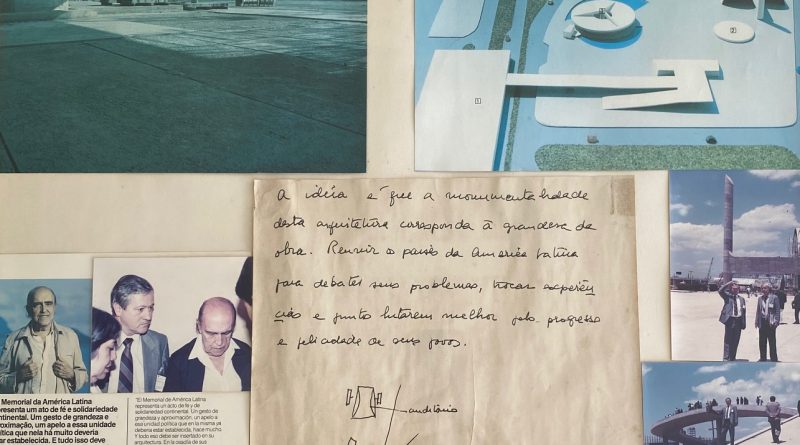 1
2
A idéia é que a monumentalidade
desta arquitetura corresponda à grandesa da
obra. Reunir os paises da America Latina
para debater seus problemas, trocar experên
cias e juntos lutarem melhor pelo progresso
e felicidade de seus povos.
auditório
Memorial da América Latina
presenta um ato de fé e solidariedade
ntinental. Um gesto de grandeza e
roximação, um apelo a essa unidade
lítica que nela há muito deveria
ar estabelecida. E tudo isso deve
"El Memorial de América Latina
representa un acto de fe y de
solidaridad continental. Un gesto de
grandeza y aproximación, un apelo a
esa unidad política que en la misma ya
debería estar establecida, hace mucho.
Y todo eso debe ser insertado en su
arquitectura. En la osadía de sus